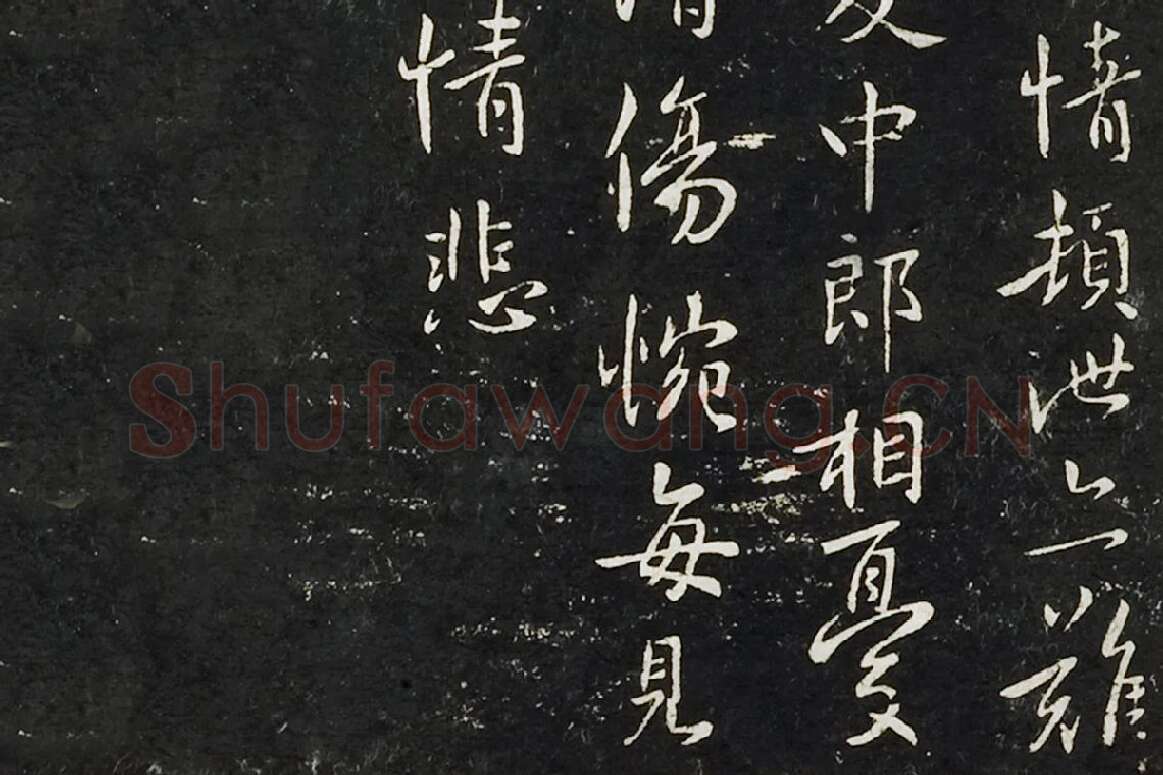 情頓泄亡難
中郎相憂
傷惋每見
情悲
Shufawang.CN